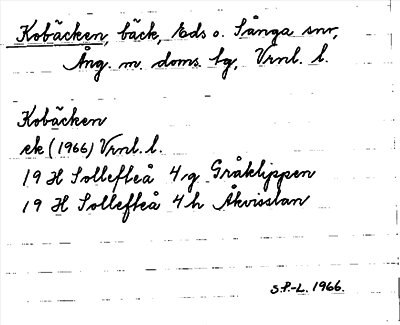 Kobäcken, bäck, Eds o. Sånga snr,
Ång. m. doms. sg, Vrnl. l.
Kobäcken
ek (1966) Vrnl. l.
19 H Sollefteå 4 g Gråklippen
19 H Sollefteå 4 h Åkvisslan
S.P.-L. 1966.